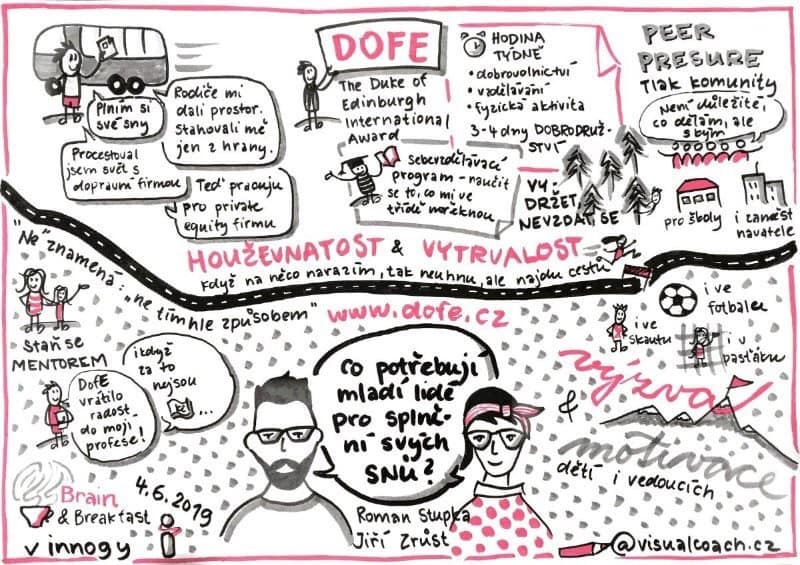 Plním si
své sny
Rodiče mi
dali prostor.
Stahovali mě
jen z hrany.
Procestoval
jsem svět s
dopravní firmou
Teď pracuju
pro private
equity firmu
DOFE
The Duke of
Edinburgh
International
Award
Sebevzdělávací
program - naučit
se to, co mi ve
třídě neřeknou
HODINA
TÝDNĚ
• dobrovolnictví
• vzdělávání
• fyzická aktivita
3-4 dny DOBRODRUŽ-
STVÍ
VY-
DRŽET,
NEVZDAT SE
PEER
PRESURE
Tlak komunity
Není důležité,
co dělám, ale
s kým
pro školy
i zaměst
navatele
HOUŽEVNATOST & VYTRVALOST
Když na něco narazím, tak neuhnu, ale najdu cestu
"Ne" znamená: "ne
tímhle způsobem"
www.dofe.cz
Staň se
MENTOREM
DofE
vrátilo
radost
do mojí
profese!
i když
za to
nejsou
Kč...
Co potřebují
mladí lidé
pro splně-
ní svých
SNŮ?
i ve
fotbale
i ve
skautu
i v
pasťáku
výzva
&
motivace
dětí i vedoucích
Brain
& Breakfast
v innogy
4.6.2019
Roman Stupka
Jiří Zrůst
@visualcoach.cz